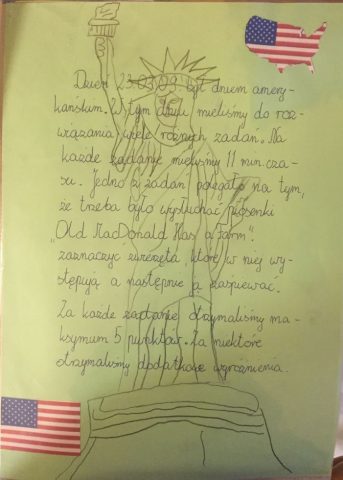 Dzień 25.03.09. był dniem amery-
kańskim. W tym dniu mieliśmy do roz-
wiązania wiele różnych zadań. Na
każde zadanie mieliśmy 11 min. cza-
su. Jedno z zadań polegało na tym,
że trzeba było wysłuchać piosenki
„Old MacDonald Has a farm".
zaznaczyć zwierzęta, które w niej wy-
stępują a następnie ją zaśpiewać.
Za każde zadanie otrzymaliśmy ma-
ksymum 5 punktów. Za niektóre
otrzymaliśmy dodatkowe wyróżnienia.